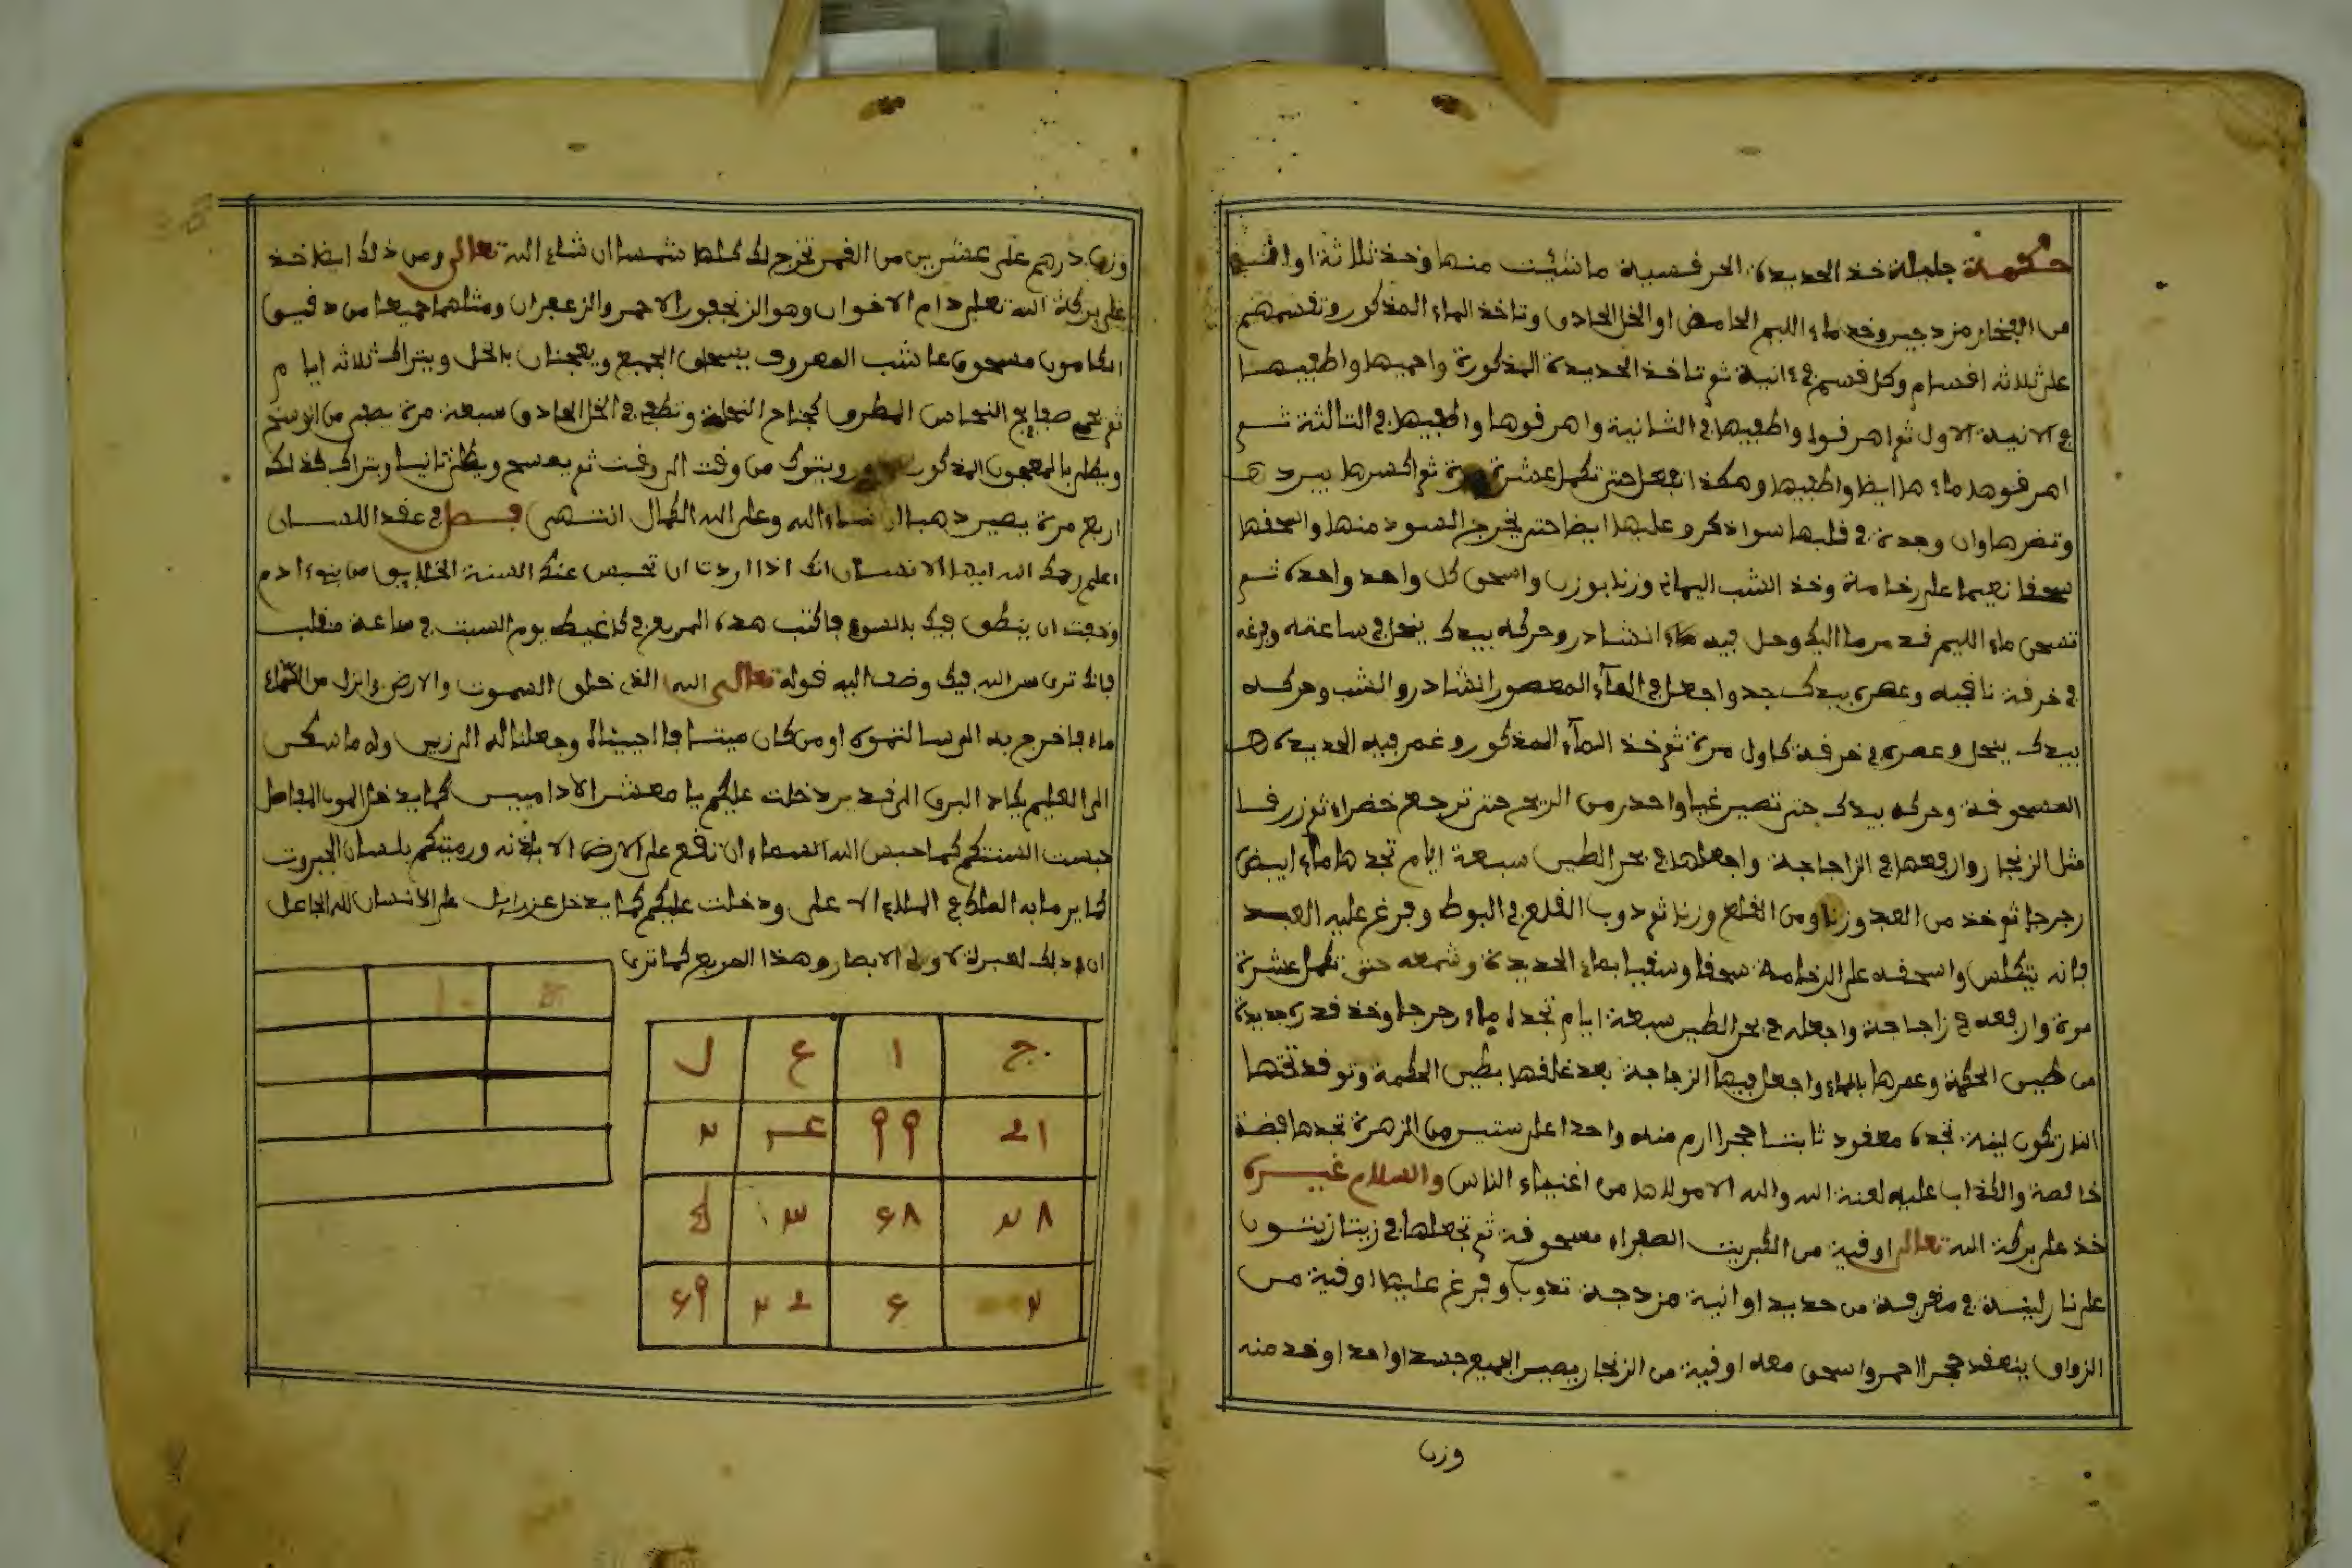 حكمة جليلة خذ الحديدة الحرفسية ما شئت منها وخذ ثلاثة اواني
من الفخار مزدجين وخذ ماء الليم الحامض او الخل الحادق وتاخذ الماء المذكور وتقسمهم
على ثلاثه اقسام وكل قسم في انية ثم تاخذ الحديدة المذكورة واحميها واطفيها
في الانية الاول ثم اهرقوا واطفيها في الثانية واهرقوها واطفيها في الثالثة ثم
اهرقوها ماءها ايظا واطفيها وهكذا تفعل حتى تكمل عشرة مرة ثم اكسرها بيردها
وتنضرها وان وجدة في قلبها سواد كرو عليها ايضا حتى يخرج السود منها واسحقها
سحقا نعيما على رخامة وخذ الشب اليماني وزنا بوزن واسحق كل واحد واحدة ثم
تسحق ماء الليم قدر ما اليك وحل فيه ماء انشادر وحركه بيدك ينحل في ساعته وفرغه
في خرقة نافية وعصره بيدك جد واجعل في المآء المعصور انشادر والشب وحركه
بيدك ينحل وعصره في خرقة كاول مرة ثم خذ المآء المذكور وغمر فيه الحديدة
المسحوقة وحركه بيدك حتى تصير غبا واحدر من الريح حتى ترجع خضراء ثم زرقا
مثل الزنجار وارفعها في الزاجاجة واجعلها في بحر الطين سبعة ايام تجدها ماء ابيض
رجرجا ثم خذ من العبد وزنا ومن القلع وزنا ثم دوب القلع في البوط وفرغ عليه العبد
فانه يتكلس واسحقه على الرخامة سحقا وسقيا بماء الحديدة وشمعه حتى تكمل عشرة
مرة وارفعه في زاجاجة واجعله في بحر الطين سبعة ايام تجده ماء رجرجا وخذ قدرة جديدة
من طين الحكمة وعمرها بالماء واجعل فيها الزجاجة بعد غلقها بطين الحكمة وتوقد تحتها
النار تكون لينة تجده معقود ثابتا حجرا ارم منه واحدا على ستين من الزهرة تجدها فضة
خالصة والكذاب عليه لعنة الله والله الا مولاها من اغنياء الناس والسلام غيره
خذ على بركة الله تعالى اوقية من الكبريت الصفراء مسحوقة ثم تجعلها في زيتا زيتون
على نار لينة في مغرفة من حديد او انية مزدجة تدوب وفرغ عليها اوقية من
الزواق ينعقد حجرا احمر واسحق معه اوقية من الزنجار يصير الجميع جسدا واحدا وخذ منه
وزن
وزن درهم على عشرين من القمر تخرج لك كلها شمسا ان شاء الله تعالى ومن ذلك ايضا خذ
على بركة الله تعلى دام الاخوان وهو الزنجفور الاحمر والزعفران ومثلهما جميعا من دقيق
الكامون مسحوق عاشب المعروف يسحق الجميع ويعجنان بالخل ويتراك ثلاثه ايام
ثم تحمى صفايح النحاس المطروق كجناح النحلة وتطفى في الخل الحادق سبعة مرة يصفى من الوسخ
ويطلى بالمعجون المذكور ويتوك من وقت الى وقت ثم يمسح ويطلى ثانيا ويتراك كذلك
اربع مرة يصير دهبا ان شاء الله وعلى الله الكمال انتهى فصل في عقد اللسان
اعلم رحمك الله ايها الانسان انك اذا اردت ان تحبس عنك السنة الخلايق من بنوء ادم
وخفت ان ينطق فيك بالسوء فاكتب هده المربع في كاغيط يوم السبت في ساعة منقلب
فانك ترى سر الله فيك وضف اليه قوله تعالى الله الذى خلق السموت والارض وانزل من السماء
ماء فاخرج به الى وسا لتموه او من كان ميتا فاحييناه وجعلنا له الى زين وله ما سكن
الى العليم يكاد البرق الى قدير دخلت عليكم يا معشر الادميين كما يدخل الموت المفاصل
حبست السنتكم كما حبس الله السماء ان تقع على الارض الا باذنه ورميتكم بلسان الجبروت
كما يرما به الملك في الملاء الا على ودخلت عليكم كما يدخل عزرايل على الانسان لله الجاعل
ان في دلك لعبرة لاولى الابصار وهذا المربع كما ترى
ج ا ع ل